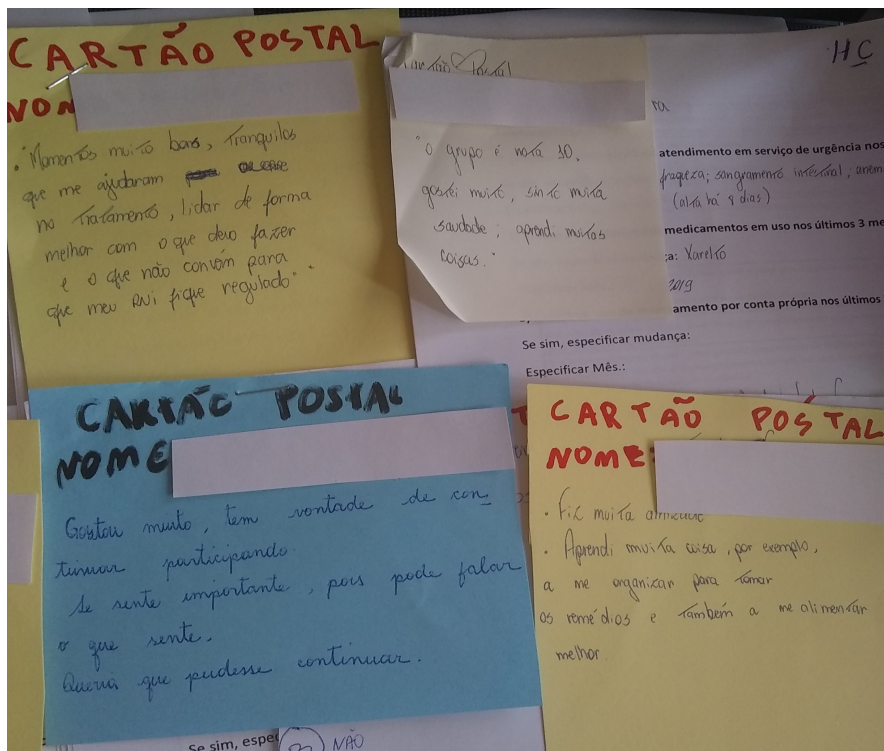 CARTÃO POSTAL
"Momentos muito bons, Tranquilos
que me ajudaram
no Tratamento, lidar de forma
melhor com o que devo fazer
e o que não convém para
que meu RNi fique regulado".
Postal
"O grupo é nota 10.
gostei muito, sinto muita
saudade; aprendi muitas
coisas."
HC
atendimento em serviço de urgência nos
fraqueza; sangramento intestinal; anem
(alta há 8 dias)
medicamentos em uso nos últimos 3 me
ça: Xarelto
2019
amento por conta própria nos últimos
Se sim, especificar mudança:
Especificar Mês.:
CARTÃO POSTAL
NOME
Gostou muito, tem vontade de con_
tinuar participando
Se sente importante, pois pode falar
o que sente.
Queria que pudesse continuar.
CARTAÕ POSTAL
NOME:
. Fiz muita
. Aprendi muita coisa, por exemplo,
a me organizar para Tomar
os remédios e também a me alimentar
melhor
Se sim, espec
NÃO